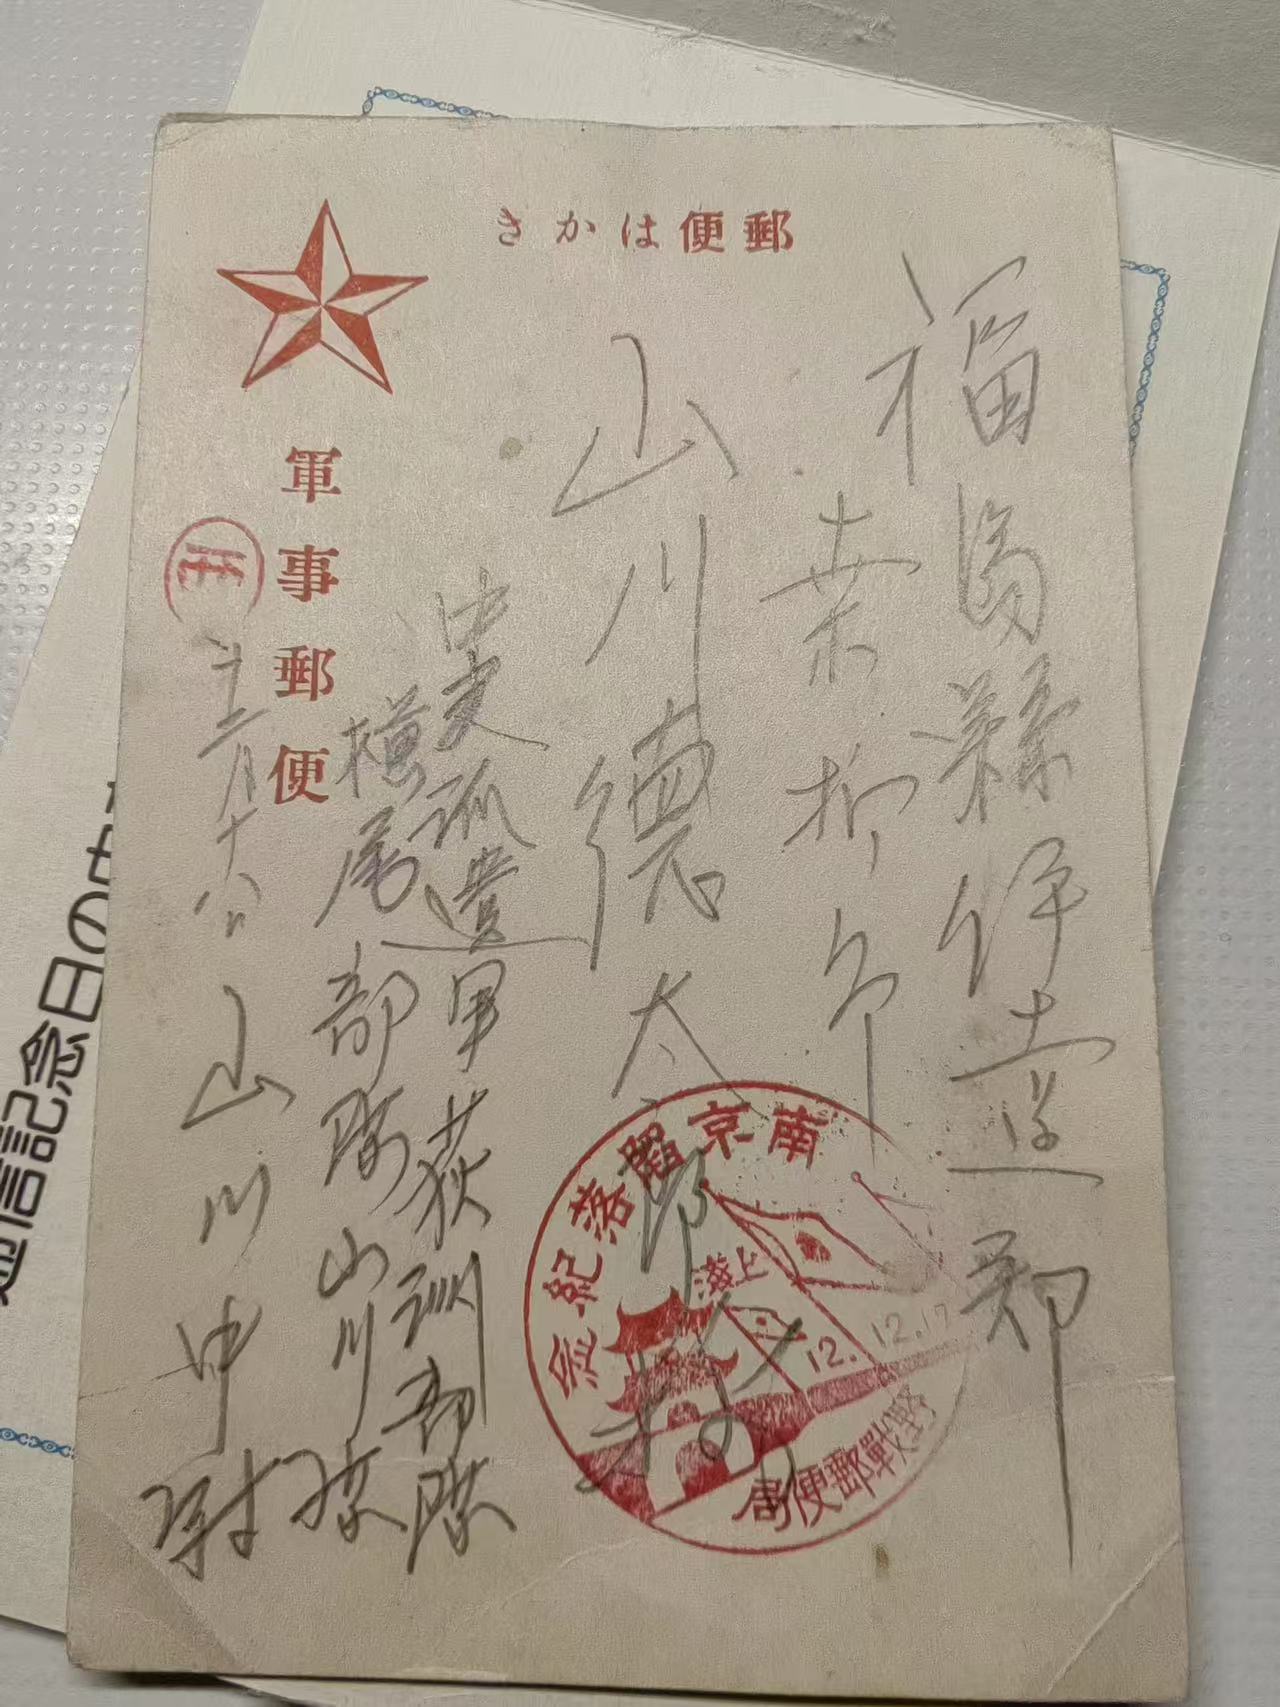 郵便はかき
福島縣伊達郡
桑折町
山川德太郎様
中支派遣軍荻洲部隊
横尾部隊山川隊
山川中尉
十二月十八日
軍事郵便
南京陥落紀念
上海
12.12.17
野戰郵便局
信記念日の